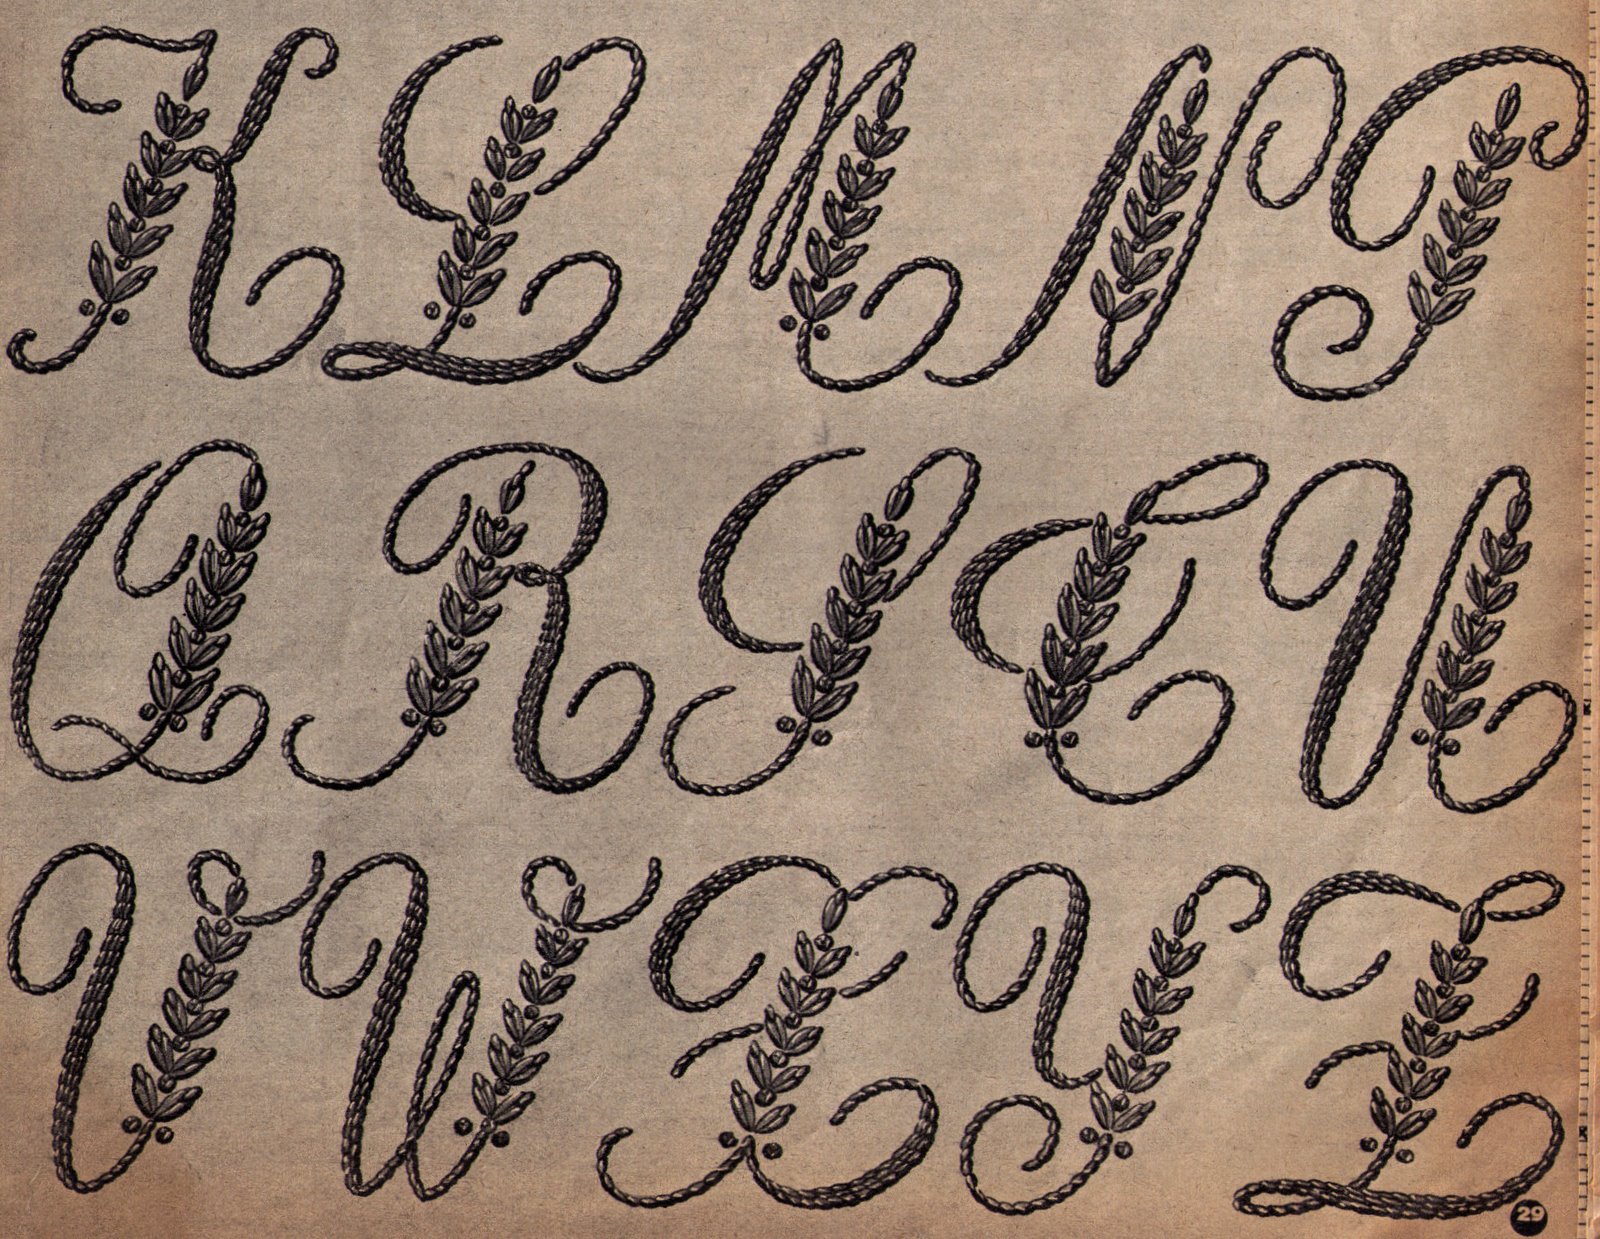 K L M N P
Q R S T U
V W X Y Z
29